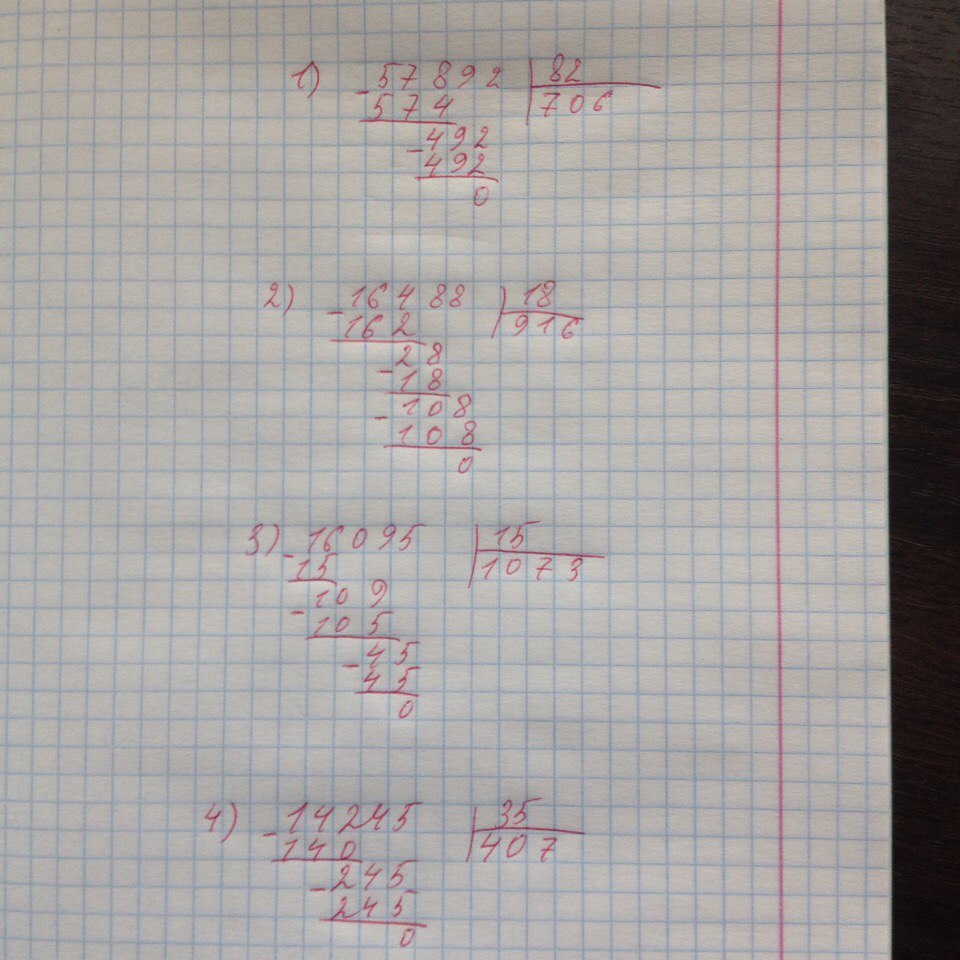 1) -57892 |82
574 |706
-492
492
0
2) -16488 |18
162 |916
-28
18
-108
108
0
3) -16095 |15
15 |1073
-109
105
-45
45
0
4) -14245 |35
140 |407
-245
245
0